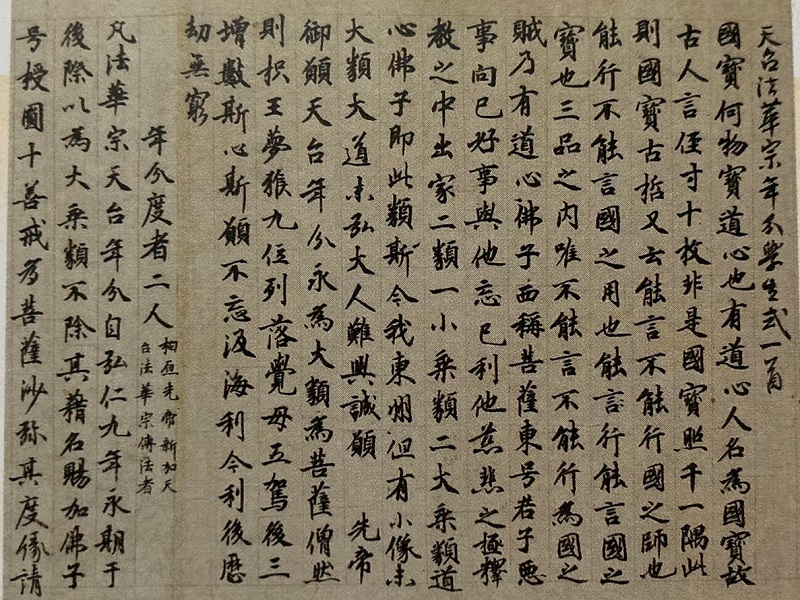 天台法華宗年分學生式一首
國寶何物寶道心也有道心人名為國寶故
古人言径寸十枚非是國寶照千一隅此
則國寶古哲又云能言不能行國之師也
能行不能言國之用也能行能言國之
寶也三品之内唯不能言不能行為國之
賊乃有道心佛子西稱菩薩東号君子悪
事向己好事與他忘己利他慈悲之極釋
教之中出家二類一小乗類二大乗類道
心佛子即此類斯今我東州但有小像未
大類大道未弘大人難興誠願 先帝
御願天台年分永為大類為菩薩僧然
則枳王夢猴九位列落覺母五駕後三
増數斯心斯願不忘汲海利今利後歴
劫無窮
年分度者二人
柏原先帝新加天
台法華宗傳法者
凡法華宗天台年分自弘仁九年永期于
後際以為大乗類不除其籍名賜加佛子
号授圓十善戒為菩薩沙弥其度縁請